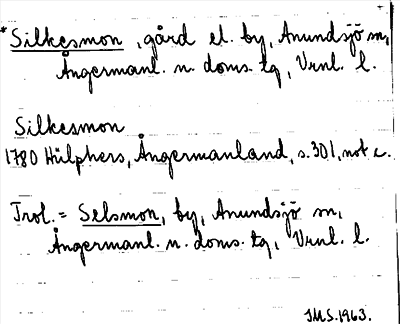 *Silkesmon, gård el. by, Anundsjö sn,
Ångermanl. n. doms. tg, Vrnl. l.
Silkesmon
1780 Hülphers, Ångermanland, s. 301, not c.
Trol. = Selsmon, by, Anundsjö sn,
Ångermanl. n. doms. tg, Vrnl. l.
IMS. 1963.